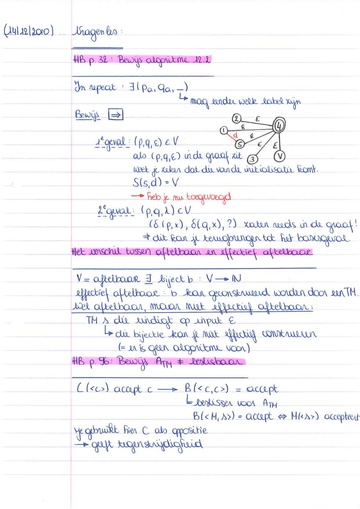 (14/12/2010) Vragenles:
HB p. 32: Bewijs algoritme 12.2
In repeat: ∃(pa, qa, _)
↳ mag eender welk label zijn
Bewijs ⇒
1e geval: (p,q,ε) ∈ V
als (p,q,ε) in de graaf zit
weet je zeker dat du van de initialisatie komt.
S(s,d) = V
→ heb je nu toegevoegd
2e geval: (p,q,λ) ∈ V
(δ(p,x), δ(q,x), ?) zaten reeds in de graaf!
→ dit kan je terugbrengen tot het basisgeval
2 ε
1 ε 4
d ε
5 ε ε
3 V
Het verschil tussen aftelbaar en effectief aftelbaar
V = aftelbaar ∃ biject b: V → ℕ
effectief aftelbaar: b kan geconstrueerd worden door een TM.
Wel aftelbaar, maar niet effectief aftelbaar:
TM's die eindigt op input ε
↳ die bijectie kan je niet effectief construeren
(= er is geen algoritme voor)
HB p. 96: Bewijs ATM ≠ beslisbaar
C(<c>) accept c → B(<c,c>) = accept
↳ beslisser voor ATM
B(<M,s>) = accept ⇔ M(<s>) accepteert
je gebruikt hier C als oppositie
→ geeft tegenstrijdigheid